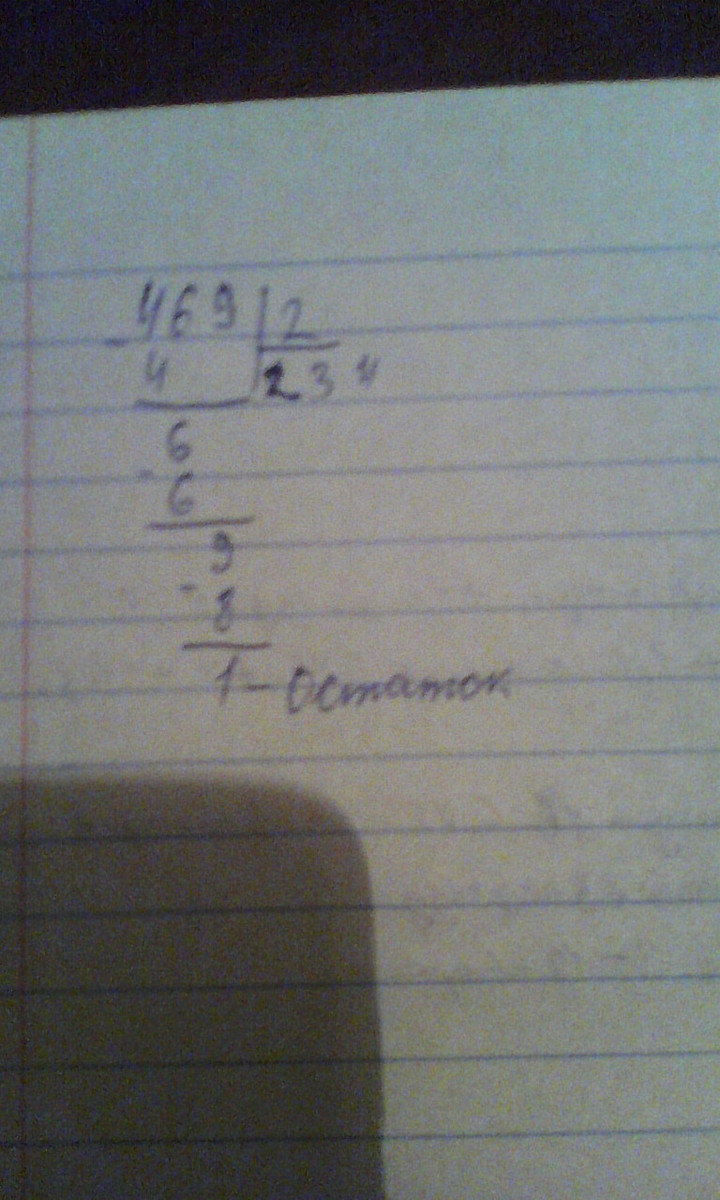 469 | 2
- 4 | 234
6
- 6
9
- 8
1 - Остаток